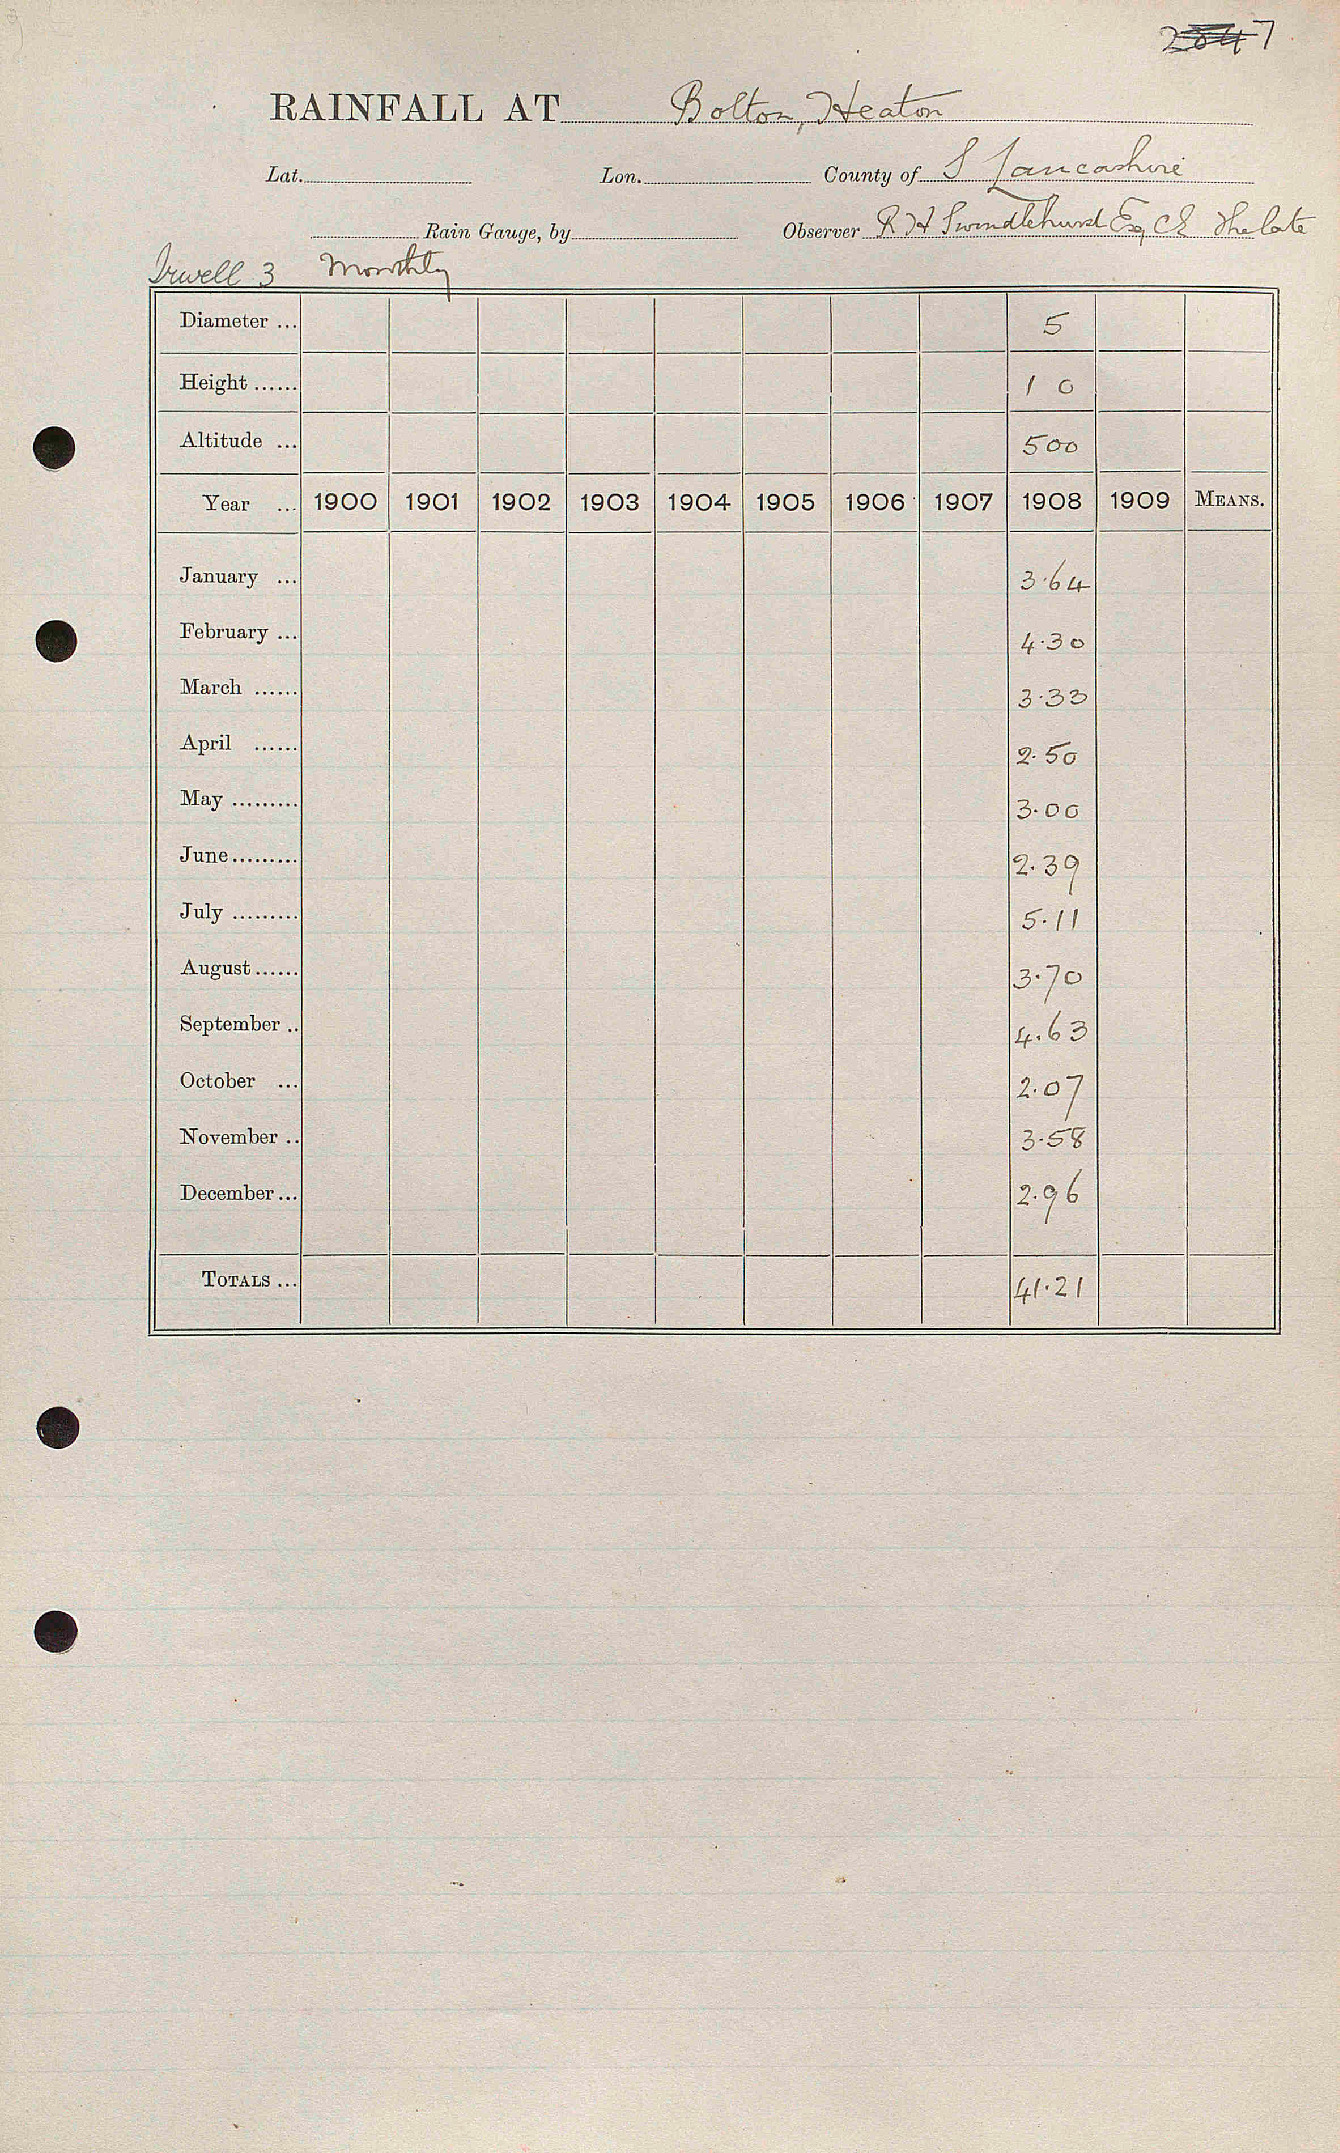 7
RAINFALL AT Bolton, Heaton
Lat. Lon. County of S Lancashire
Rain Gauge, by Observer R H Swindlehurst Esq CE The late
Irwell 3 Monthly
Diameter ... 5
Height ...... 1 0
Altitude ... 500
Year ... 1900 1901 1902 1903 1904 1905 1906 1907 1908 1909 MEANS.
January ... 3.64
February ... 4.30
March ...... 3.33
April ...... 2.50
May ......... 3.00
June ......... 2.39
July ......... 5.11
August ...... 3.70
September .. 4.63
October ... 2.07
November .. 3.58
December ... 2.96
TOTALS ... 41.21